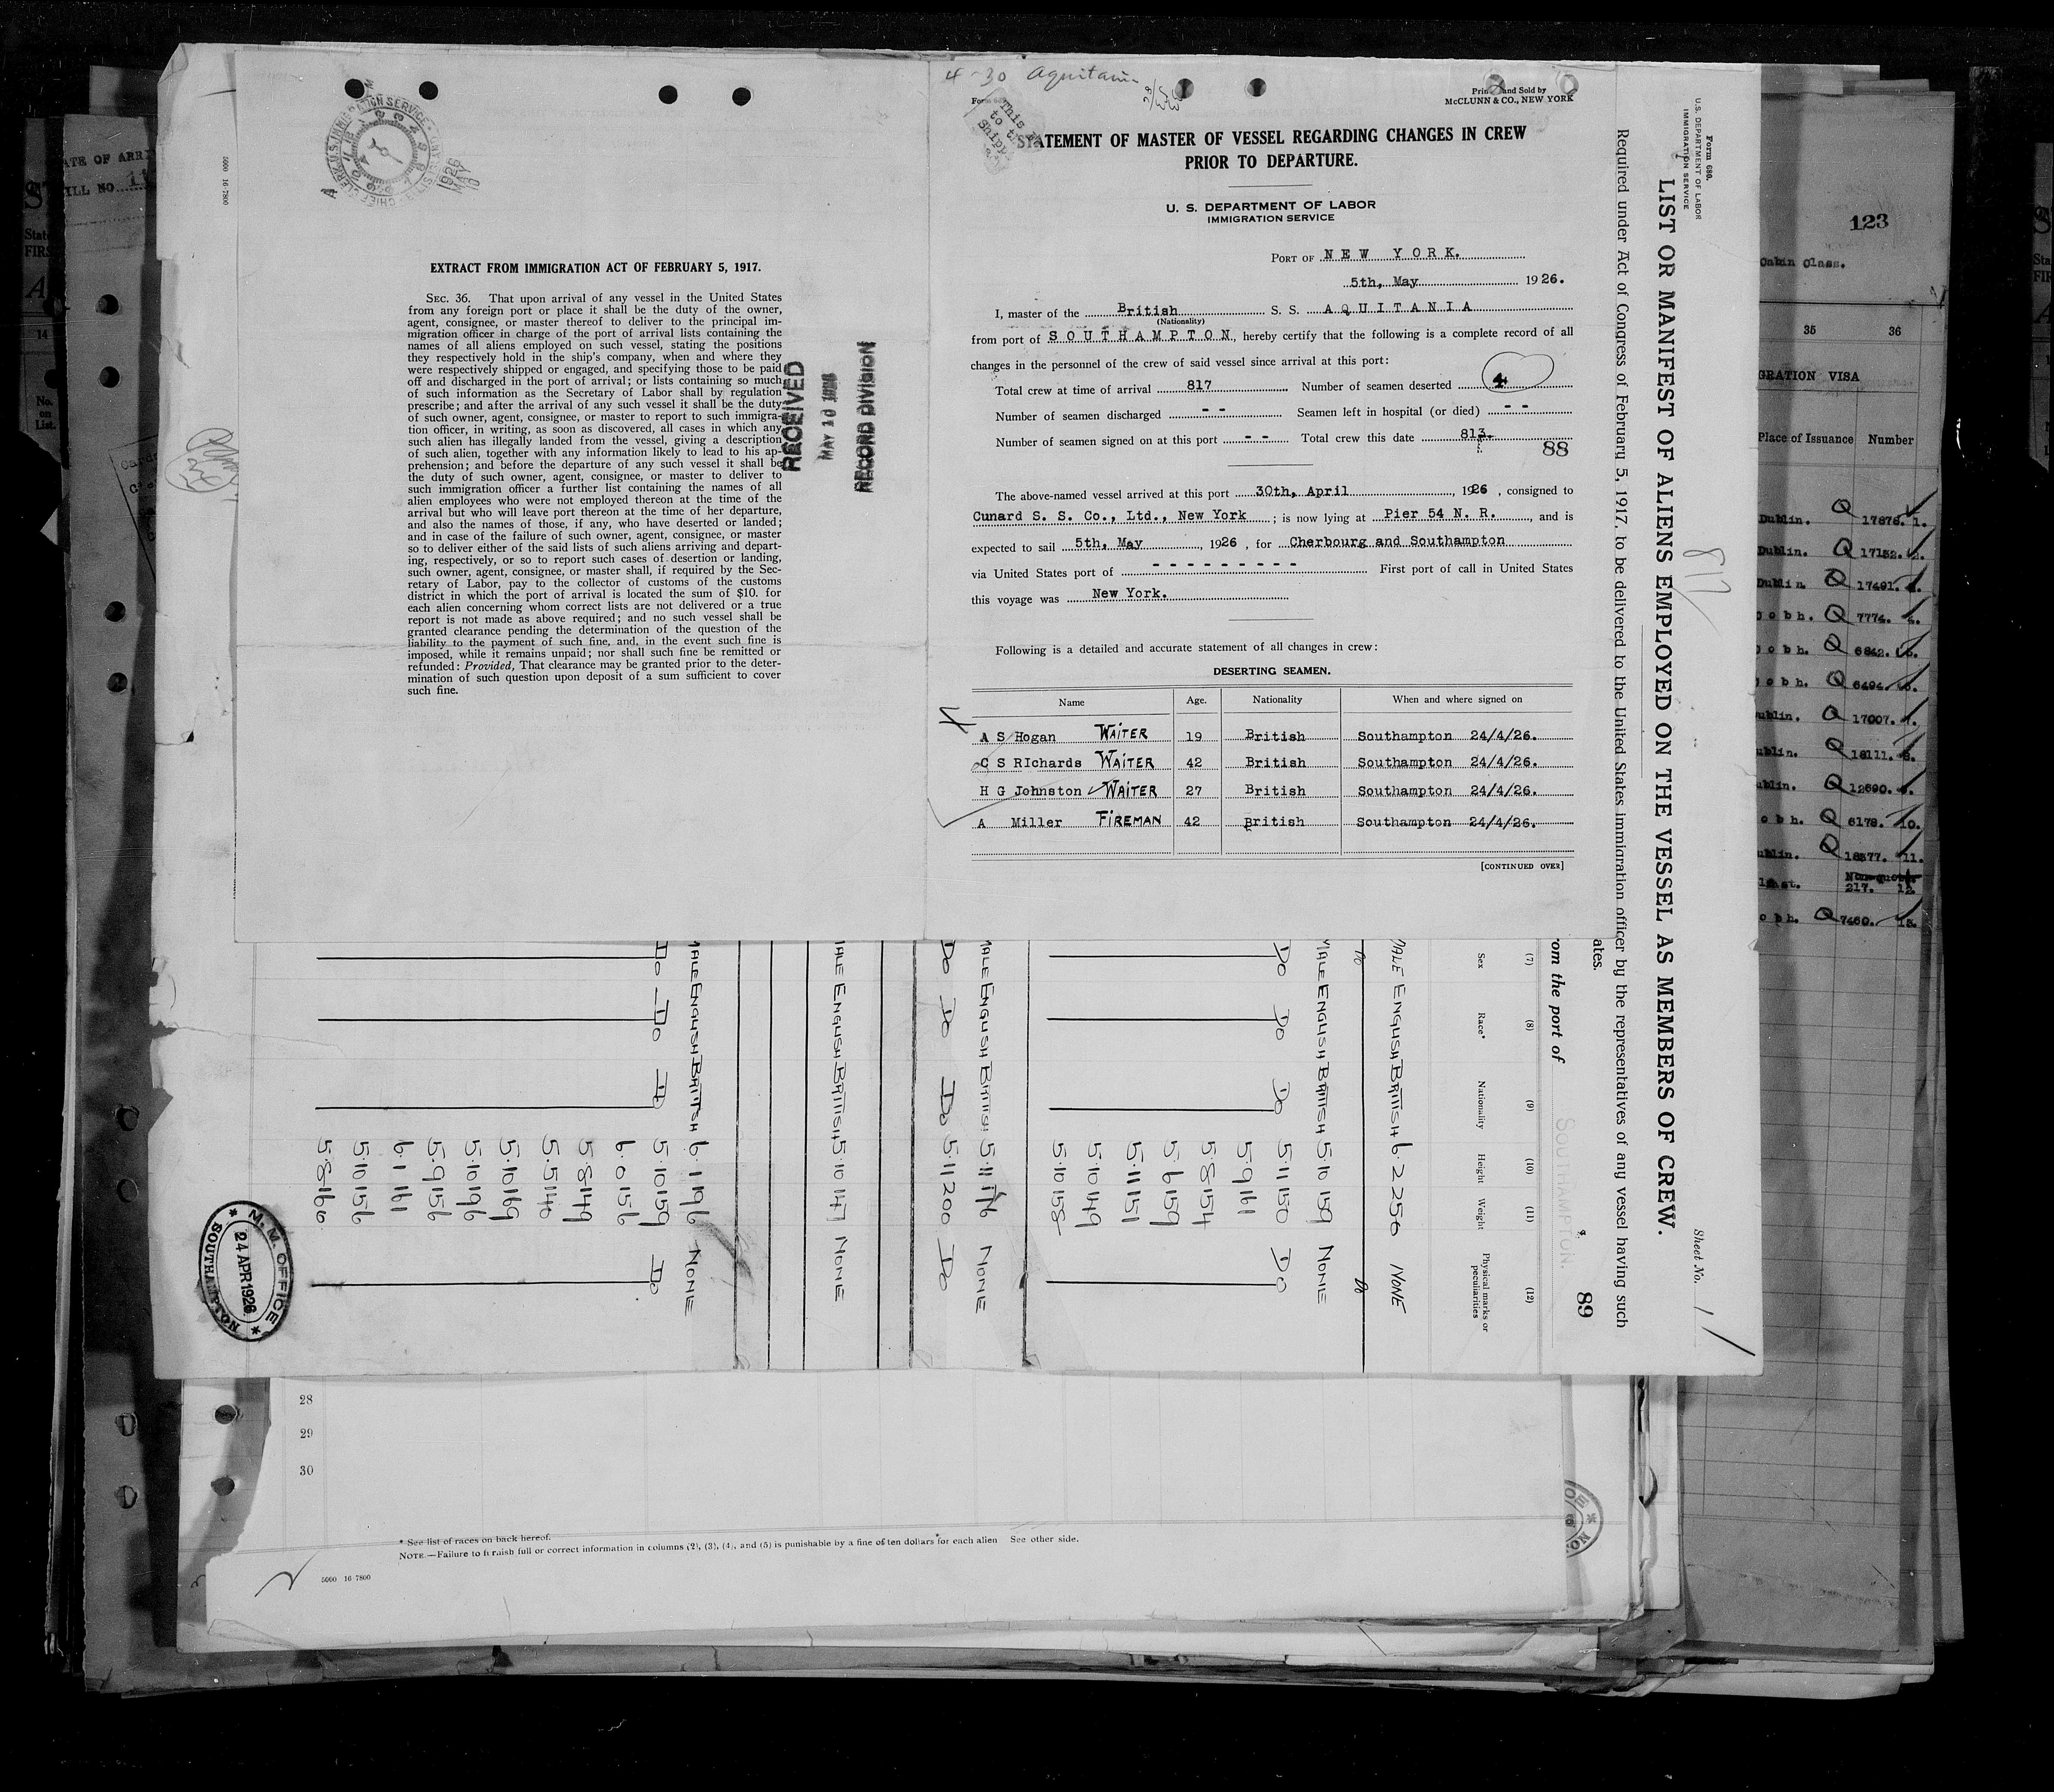 4-30 Aquitania
Printed and Sold by
McCLUNN & CO., NEW YORK
STATEMENT OF MASTER OF VESSEL REGARDING CHANGES IN CREW
PRIOR TO DEPARTURE.
U. S. DEPARTMENT OF LABOR
IMMIGRATION SERVICE
PORT OF NEW YORK.
5th, May 1926.
I, master of the British S. S. AQUITANIA
(Nationality)
from port of SOUTHAMPTON, hereby certify that the following is a complete record of all
changes in the personnel of the crew of said vessel since arrival at this port:
Total crew at time of arrival 817 Number of seamen deserted 4
Number of seamen discharged - - Seamen left in hospital (or died) - -
Number of seamen signed on at this port - - Total crew this date 813.
88
The above-named vessel arrived at this port 30th, April, 1926, consigned to
Cunard S. S. Co., Ltd., New York; is now lying at Pier 54 N. R., and is
expected to sail 5th, May, 1926, for Cherbourg and Southampton
via United States port of - - - - - - - - - First port of call in United States
this voyage was New York.
Following is a detailed and accurate statement of all changes in crew:
DESERTING SEAMEN.
Name Age. Nationality When and where signed on
4
A S Hogan WAITER 19 British Southampton 24/4/26.
C S RIchards WAITER 42 British Southampton 24/4/26.
H G Johnston WAITER 27 British Southampton 24/4/26.
A Miller FIREMAN 42 British Southampton 24/4/26.
[CONTINUED OVER]
EXTRACT FROM IMMIGRATION ACT OF FEBRUARY 5, 1917.
SEC. 36. That upon arrival of any vessel in the United States
from any foreign port or place it shall be the duty of the owner,
agent, consignee, or master thereof to deliver to the principal im-
migration officer in charge of the port of arrival lists containing the
names of all aliens employed on such vessel, stating the positions
they respectively hold in the ship's company, when and where they
were respectively shipped or engaged, and specifying those to be paid
off and discharged in the port of arrival; or lists containing so much
of such information as the Secretary of Labor shall by regulation
prescribe; and after the arrival of any such vessel it shall be the duty
of such owner, agent, consignee, or master to report to such immigra-
tion officer, in writing, as soon as discovered, all cases in which any
such alien has illegally landed from the vessel, giving a description
of such alien, together with any information likely to lead to his ap-
prehension; and before the departure of any such vessel it shall be
the duty of such owner, agent, consignee, or master to deliver to
such immigration officer a further list containing the names of all
alien employees who were not employed thereon at the time of the
arrival but who will leave port thereon at the time of her departure,
and also the names of those, if any, who have deserted or landed;
and in case of the failure of such owner, agent, consignee, or master
so to deliver either of the said lists of such aliens arriving and depart-
ing, respectively, or so to report such cases of desertion or landing,
such owner, agent, consignee, or master shall, if required by the Sec-
retary of Labor, pay to the collector of customs of the customs
district in which the port of arrival is located the sum of $10. for
each alien concerning whom correct lists are not delivered or a true
report is not made as above required; and no such vessel shall be
granted clearance pending the determination of the question of the
liability to the payment of such fine, and, in the event such fine is
imposed, while it remains unpaid; nor shall such fine be remitted or
refunded: Provided, That clearance may be granted prior to the deter-
mination of such question upon deposit of a sum sufficient to cover
such fine.
RECEIVED
MAY 10 1926
RECORD DIVISION
5000 16-7800
1926
MAY
10
Form 680.
U. S. DEPARTMENT OF LABOR
IMMIGRATION SERVICE
Sheet No. 1
LIST OR MANIFEST OF ALIENS EMPLOYED ON THE VESSEL AS MEMBERS OF CREW.
817
Required under Act of Congress of February 5, 1917, to be delivered to the United States immigration officer by the representatives of any vessel having such
ates.
89
om the port of SOUTHAMPTON.
(7) (8) (9) (10) (11) (12)
Sex Race* Nationality Height Weight Physical marks or
peculiarities
MALE ENGLISH BRITISH 6.2 256 NONE
Do Do
MALE ENGLISH BRITISH 5.10 159 NONE
Do Do Do 5.11 150 Do
5.9 161
5.8 154
5.6 159
5.11 151
5.10 149
5.10 158
MALE ENGLISH BRITISH 5.11 176 NONE
Do Do Do 5.11 200 Do
MALE ENGLISH BRITISH 5.10 147 NONE
MALE ENGLISH BRITISH 6.1 196 NONE
Do Do Do 5.10 159 Do
6.0 156
5.8 149
5.5 146
5.10 169
5.10 196
5.9 156
6.1 161
5.10 156
5.8 166
M. M. OFFICE
24 APR 1926
SOUTHAMPTON
28
29
30
* See list of races on back hereof.
NOTE.—Failure to furnish full or correct information in columns (2), (3), (4), and (5) is punishable by a fine of ten dollars for each alien See other side.
5000 16-7800
123
Cabin Class.
35 36
GRATION VISA
Place of Issuance Number
Dublin. Q 17878. 1.
Dublin. Q 17152. 2.
Dublin Q 17491. 3.
obh. Q 7774. 4.
obh. Q 6842. 5.
obh. Q 6494. 6.
ublin. Q 17007. 7.
ublin. Q 18111. 8.
ublin. Q 12690. 9.
obh. Q 6178. 10.
ublin. Q 18377. 11.
Non-quota
217. 12.
obh. Q 7460. 13.
ATE OF ARR
ILL NO.
State
FIRS
14
No.
on
List.